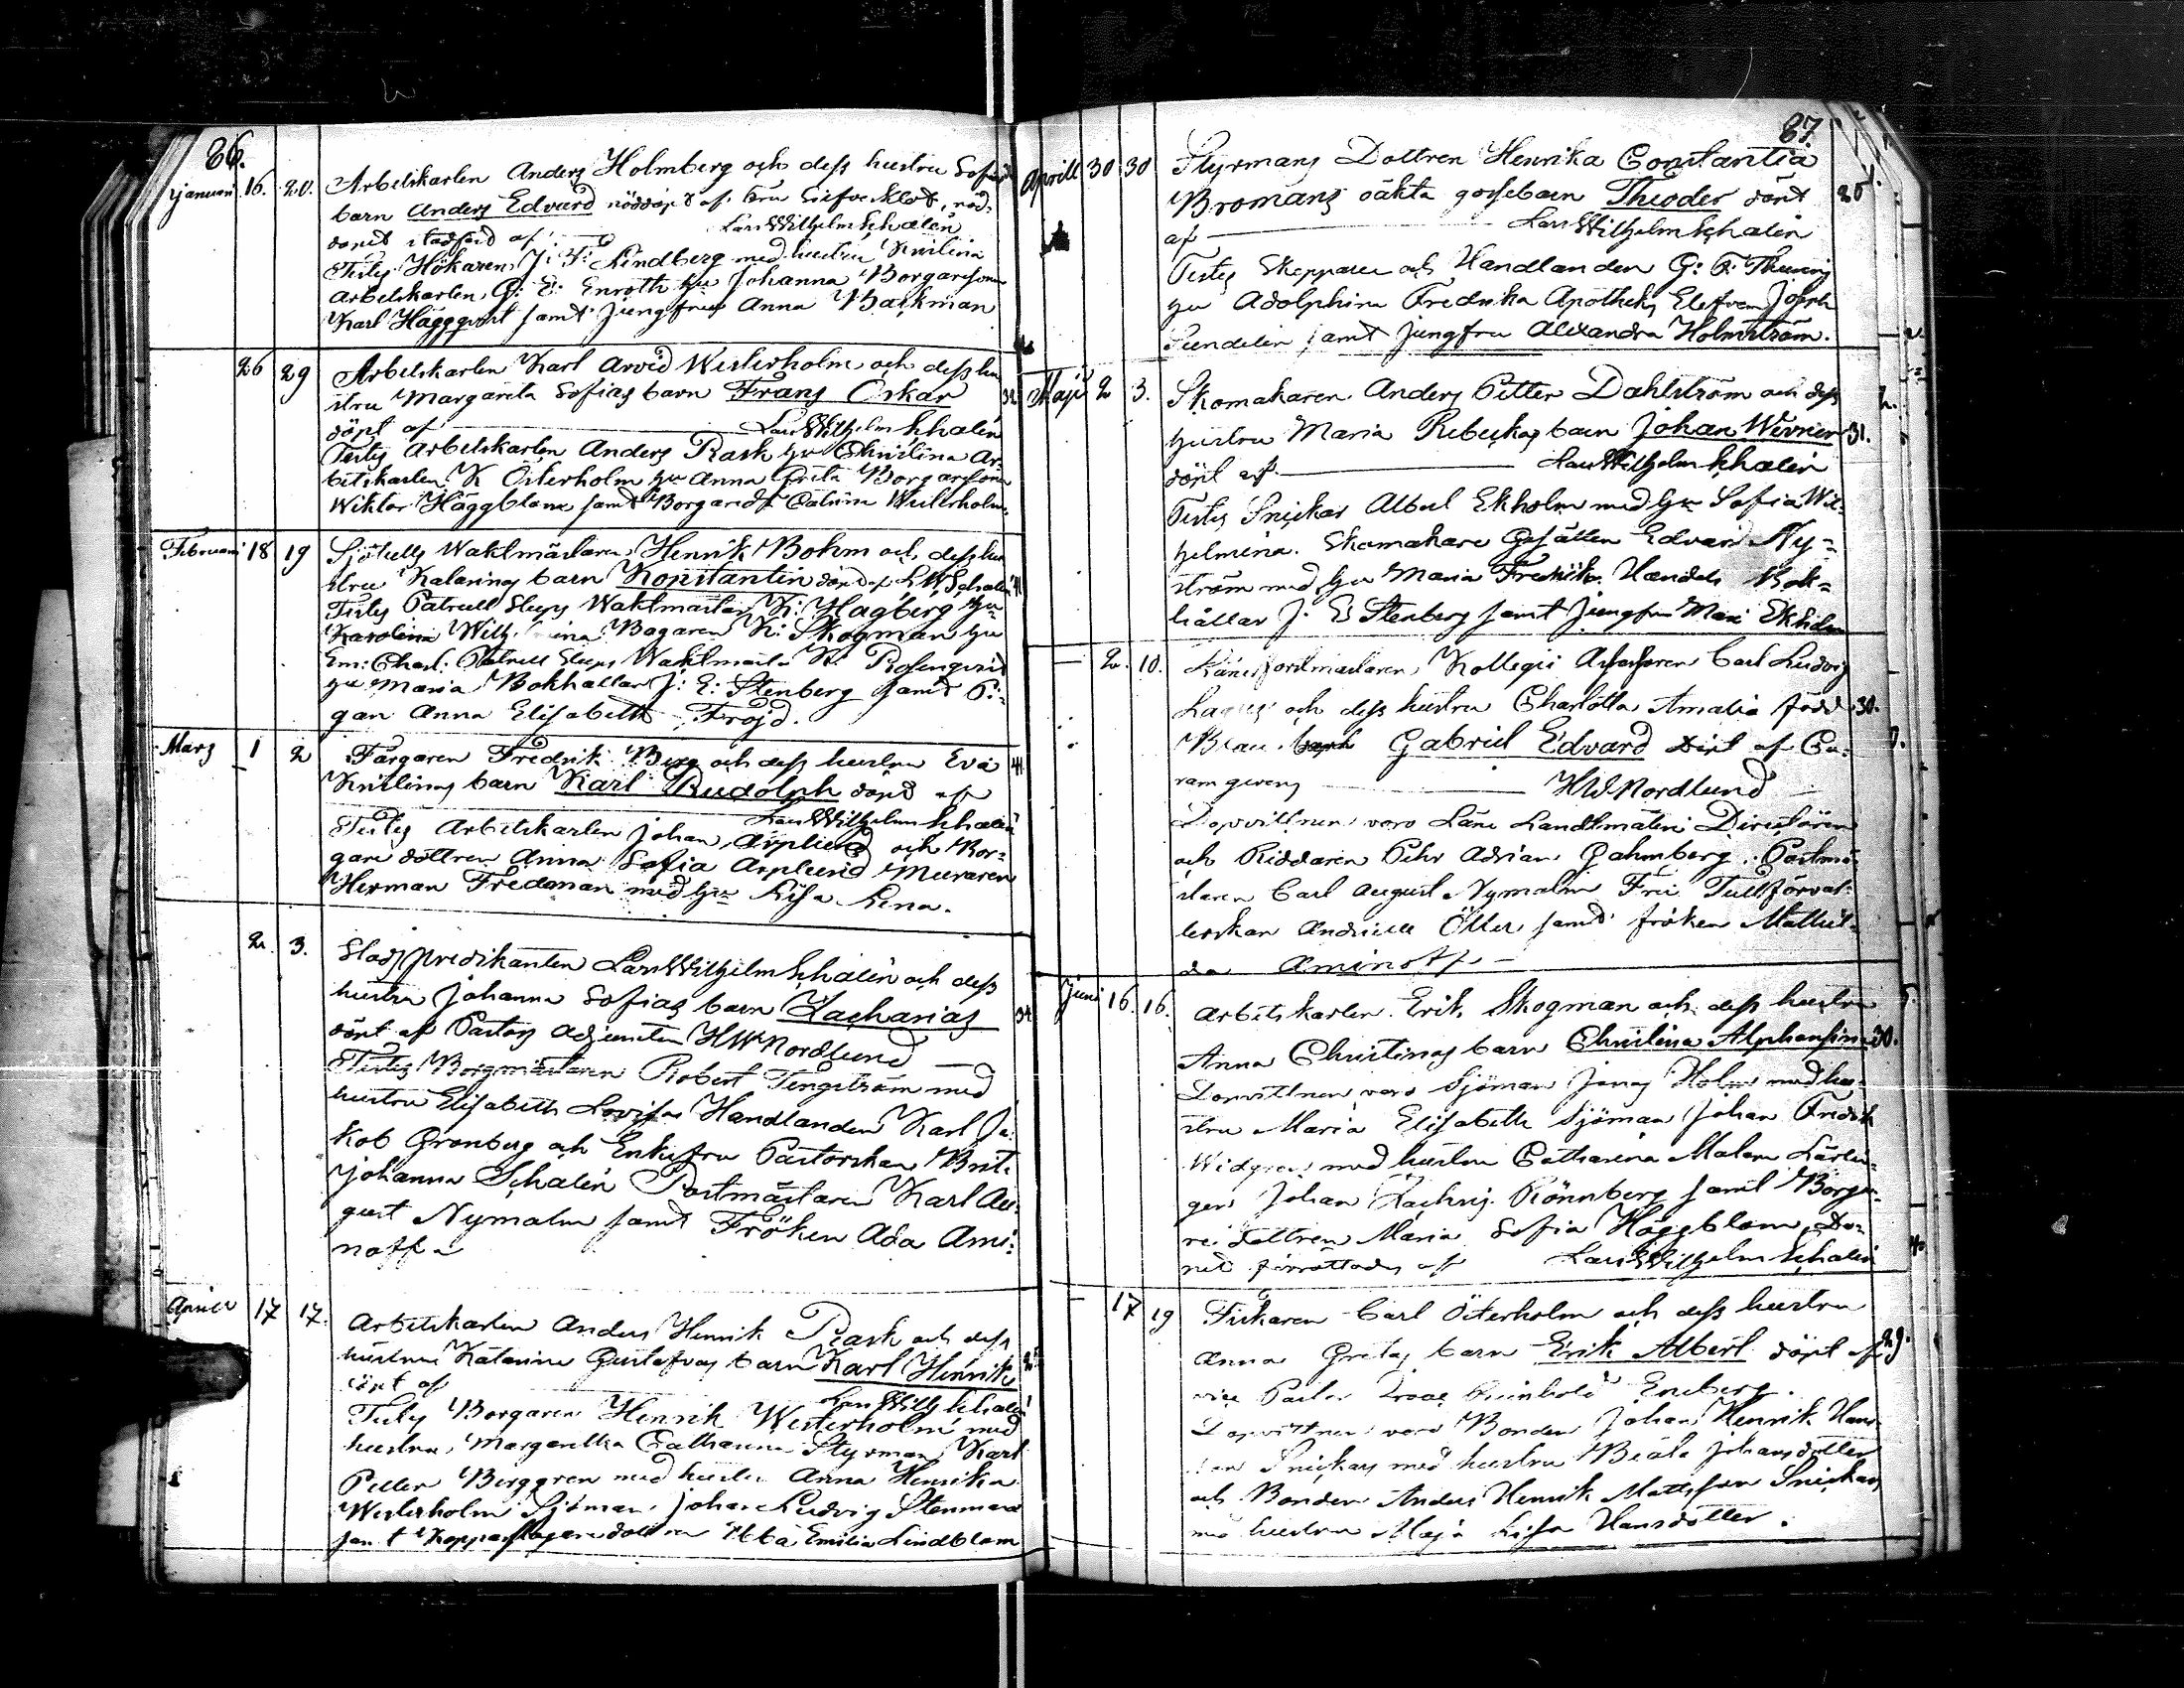 86.
Januari 16. 20. Arbetskarlen Anders Holmberg och dess hustru Sofias
barn Anders Edvard nöddöpt af fru Klodt, nöd-
dopet stadfäst af Lars Wilhelm Schalén
Testes Hökaren J: F: Lindberg med hustru Kristina
Arbetskarlen G: E: Enroth hu Johanna Borgaresonen
Karl Häggqvist samt Jungfru Anna Backman
26 29 Arbetskarlen Karl Arvid Westerholm och dess hu
stru Margareta Sofias barn Frans Oskar 32
döpt af Lars Wilhelm Schalén
Testes Arbetskarlen Anders Rask hu Christina Ar-
betskarlen K Österholm hu Anna Greta Borgaresonen
Wiktor Häggblom samt Borgaredr Catrina Westerholm
Februari 18 19 Sjötulls Waktmästaren Henrik Bohm och dess hu
stru Katarinas barn Konstantin döpt af L W Schalén 41
Testes Patrull Slups Waktmästar K: Hagberg hu
Karolina Bagaren K: Skogman hu
Em: Charl: Patrull Slups Waktmästa K: Rosenqvist
hu Maria Bokhållar J: E: Stenberg samt Pi-
gan Anna Elisabeth Fröjd.
Mars 1 2 Färgaren Fredrik Berg och dess hustru Eva 41
Kristinas barn Karl Rudolph döpt af
Lars Wilhelm Schalén
Testes Arbetskarlen Johan Asplund och Bor-
gare dottren Anna Sofia Asplund Muraren
Herman Fredman med hu Lisa Lena.
2. 3. Stadspredikanten Lars Wilhelm Schalén och dess
hustru Johanna Sofias barn Zacharias 34
döpt af Pastors Adjuncten H W Nordlund
Testes Borgmästaren Robert Tengström med
hustru Elisabeth Lovisa Handlanden Karl Ja-
kob Grönberg och Enkefru Pastorskan Brita
Johanna Schalén Postmästaren Karl Au-
gust Nymalm samt Fröken Ada Ami-
noff
April 17 17. Arbetskarlen Anders Henrik Rask och dess
hustru Katarina Gustafvas barn Karl Henrik
döpt af Lars Wilh Schalén
Testes Borgaren Henrik Westerholm med
hustru Margaretha Catharina Styrman Karl
Petter Berggren med hustru Anna Henrika
Westerholm Sjöman Johan Ludvig Stenmark
samt Kopparslagaredottren Ebba Emilia Lindblom
87.
Aprill 30 30 Styrmans Dottren Henrika Constantia
Bromans oäkta gossebarn Theodor döpt 20
af Lars Wilhelm Schalén
Testes Skepparen och Handlanden G: F: Thuring
hu Adolphina Fredrika Apotheks Elefven Josef
Sundelin samt Jungfru Alexandra Holmström.
Maji 2 3. Skomakaren Anders Petter Dahlström och dess
hustru Maria Rebeckas barn Johan Werner 31.
döpt af Lars Wilhelm Schalén
Testes Snickar Albert Ekholm med hu Sofia Wil-
helmina. Skomakare Gesällen Edvard Ny-
ström med hu Maria Fredrika Handels Bok-
hållar J. E Stenberg samt Jungfru Maria Ekholm
2. 10. Länes forstmästaren Kollegii Assessoren Carl Ludvig
Lagus och dess hustru Charlotta Amalia född 30.
Brau barn Gabriel Edvard Döpt af Cu-
ram gerens H W Nordlund
Dopvittnen voro Läne Landtmäteri Directören
och Riddaren Pehr Adrian Gahmberg. Postmä-
staren Carl August Nymalm Fru Tullförval-
terskan Öller samt fröken Mathil-
da Aminoff
Juni 16. 16. Arbetskarlen Erik Skogman och dess hustru
Anna Christinas barn Christina Alphonsina 30.
Dopvittnen voro Sjöman Jonas Holm med hu-
stru Maria Elisabeth Sjöman Johan Fredrik
Widgren med hustru Catharina Malena Lärlin-
gen Johan Zachris Rönnberg samt Borga-
re dottren Maria Sofia Häggblom. Do-
pet förrättades af Lars Wilhelm Schalén
17 19 Fiskaren Carl Österholm och dess hustru
Anna Gretas barn Erik Albert döpt af 29.
vice Pastor Reinhold Eneberg.
Dopvittnen voro Bonden Johan Henrik Hans-
son Snickars med hustru Beata Johansdotter
och Bonden Anders Henrik Mattsson Snickars
med hustru Maja Lisa Hansdotter.